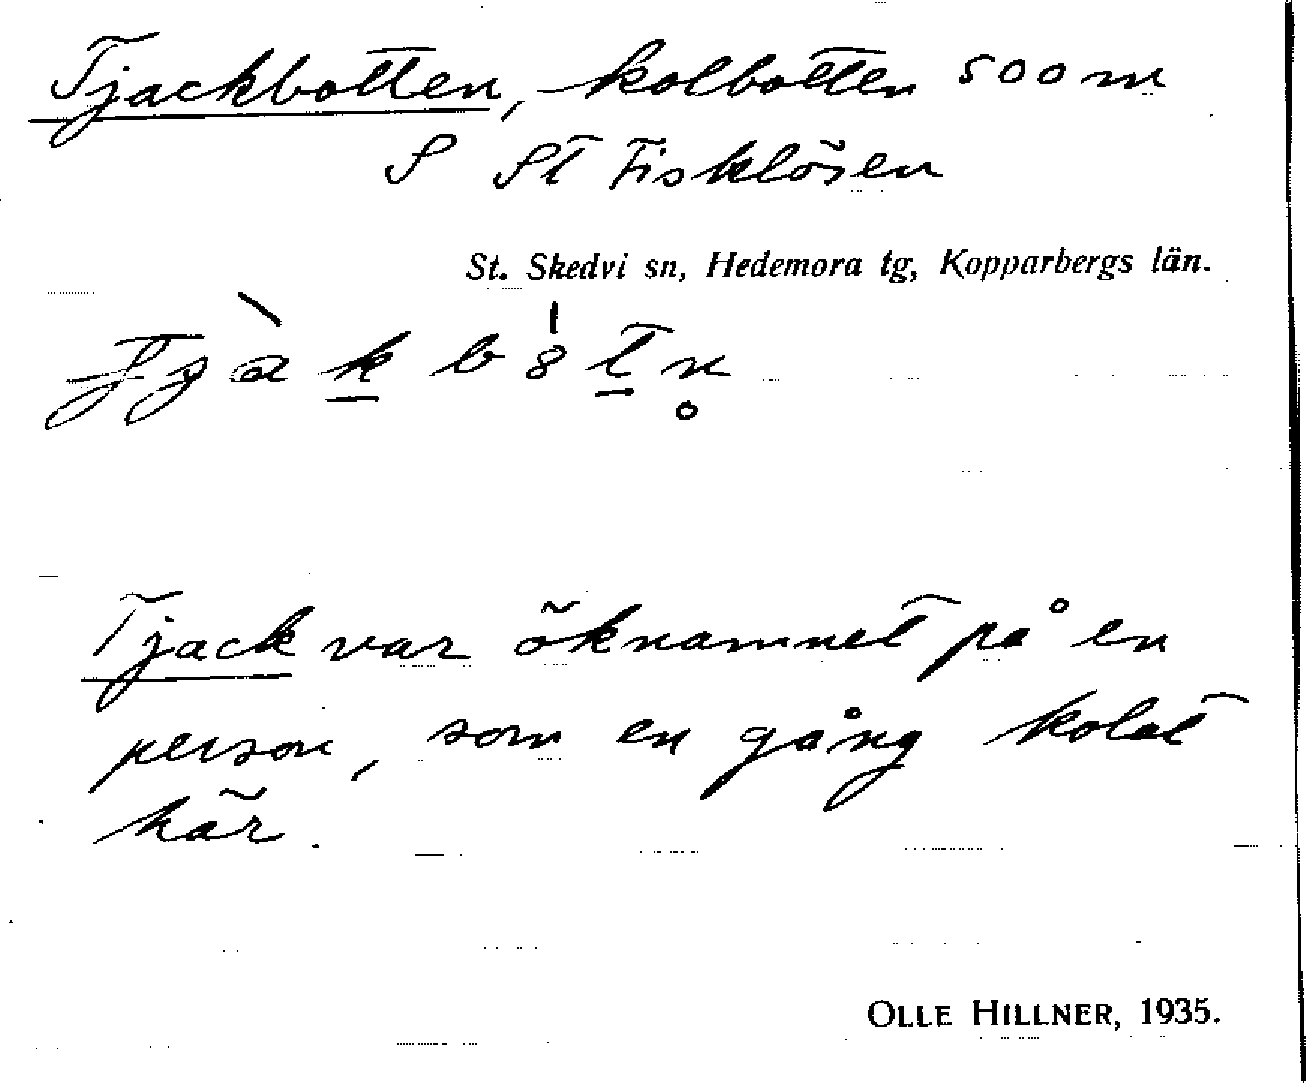 Tjackbotten, kolbotten 500 m
S St Fisklösen
St. Skedvi sn, Hedemora tg, Kopparbergs län.
Tjack var öknamnet på en
person, som en gång kolat
här.
OLLE HILLNER, 1935.